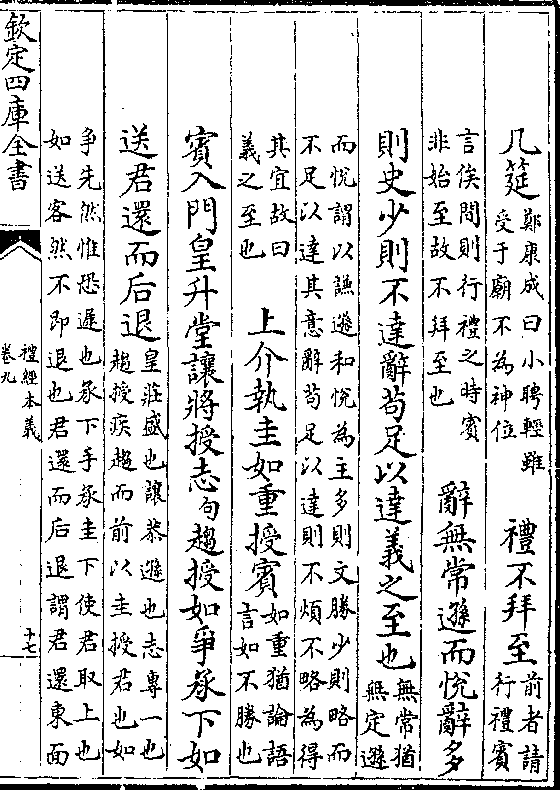 几筵
鄭康成曰小聘輕雖
受于廟不為神位
禮不拜至
前者請
行禮賓
言俟間則行禮之時賓
非始至故不拜至也
辭無常遜而悅辭多
則史少則不達辭苟足以達義之至也
無常猶
無定遜
而悅謂以謙遜和悅為主多則文勝少則略而
不足以達其意辭苟足以達則不煩不略為得
其宜故曰
義之至也
上介執圭如重授賓
如重猶論語
言如不勝也
賓入門皇升堂讓將授志句趨授如爭承下如
送君還而后退
皇莊盛也讓恭遜也志專一也
趨授疾趨而前以圭授君也如
爭先然惟恐遲也承下手承圭下使君取上也
如送客然不即退也君還而后退謂君還東面
欽定四庫全書
禮經本義
卷九
十七